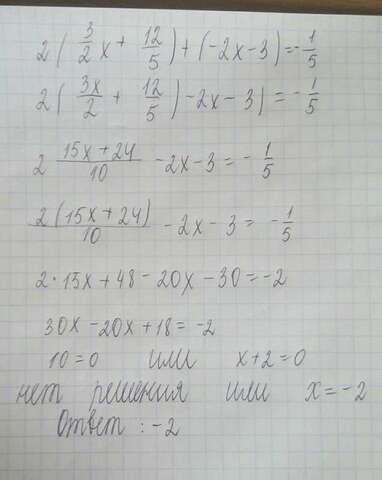 2(3/2x + 12/5) + (-2x-3) = -1/5
2(3x/2 + 12/5) - 2x - 3) = -1/5
2 15x+24/10 - 2x - 3 = -1/5
2(15x+24)/10 - 2x - 3 = -1/5
2·15x + 48 - 20x - 30 = -2
30x - 20x + 18 = -2
10 = 0 или x+2 = 0
нет решения или x = -2
Ответ : -2